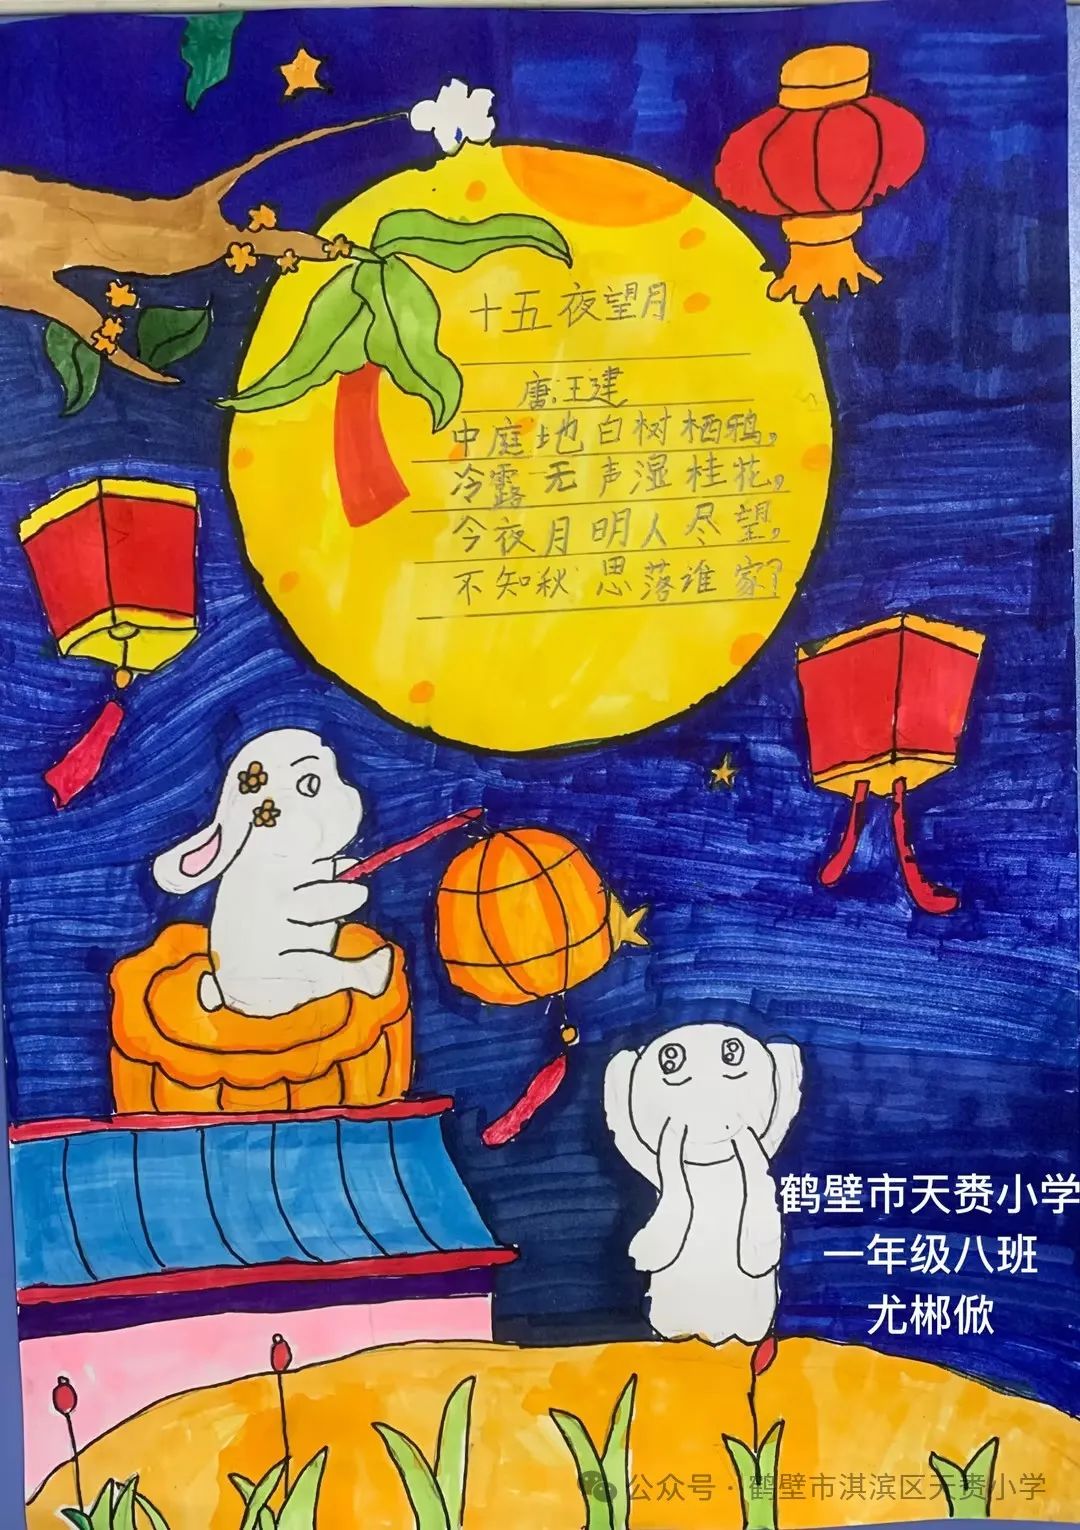 十五夜望月
唐:王建
中庭地白树栖鸦,
冷露无声湿桂花,
今夜月明人尽望,
不知秋思落谁家?
鹤壁市天赉小学
一年级八班
尤郴俽
公众号·鹤壁市淇滨区天赉小学